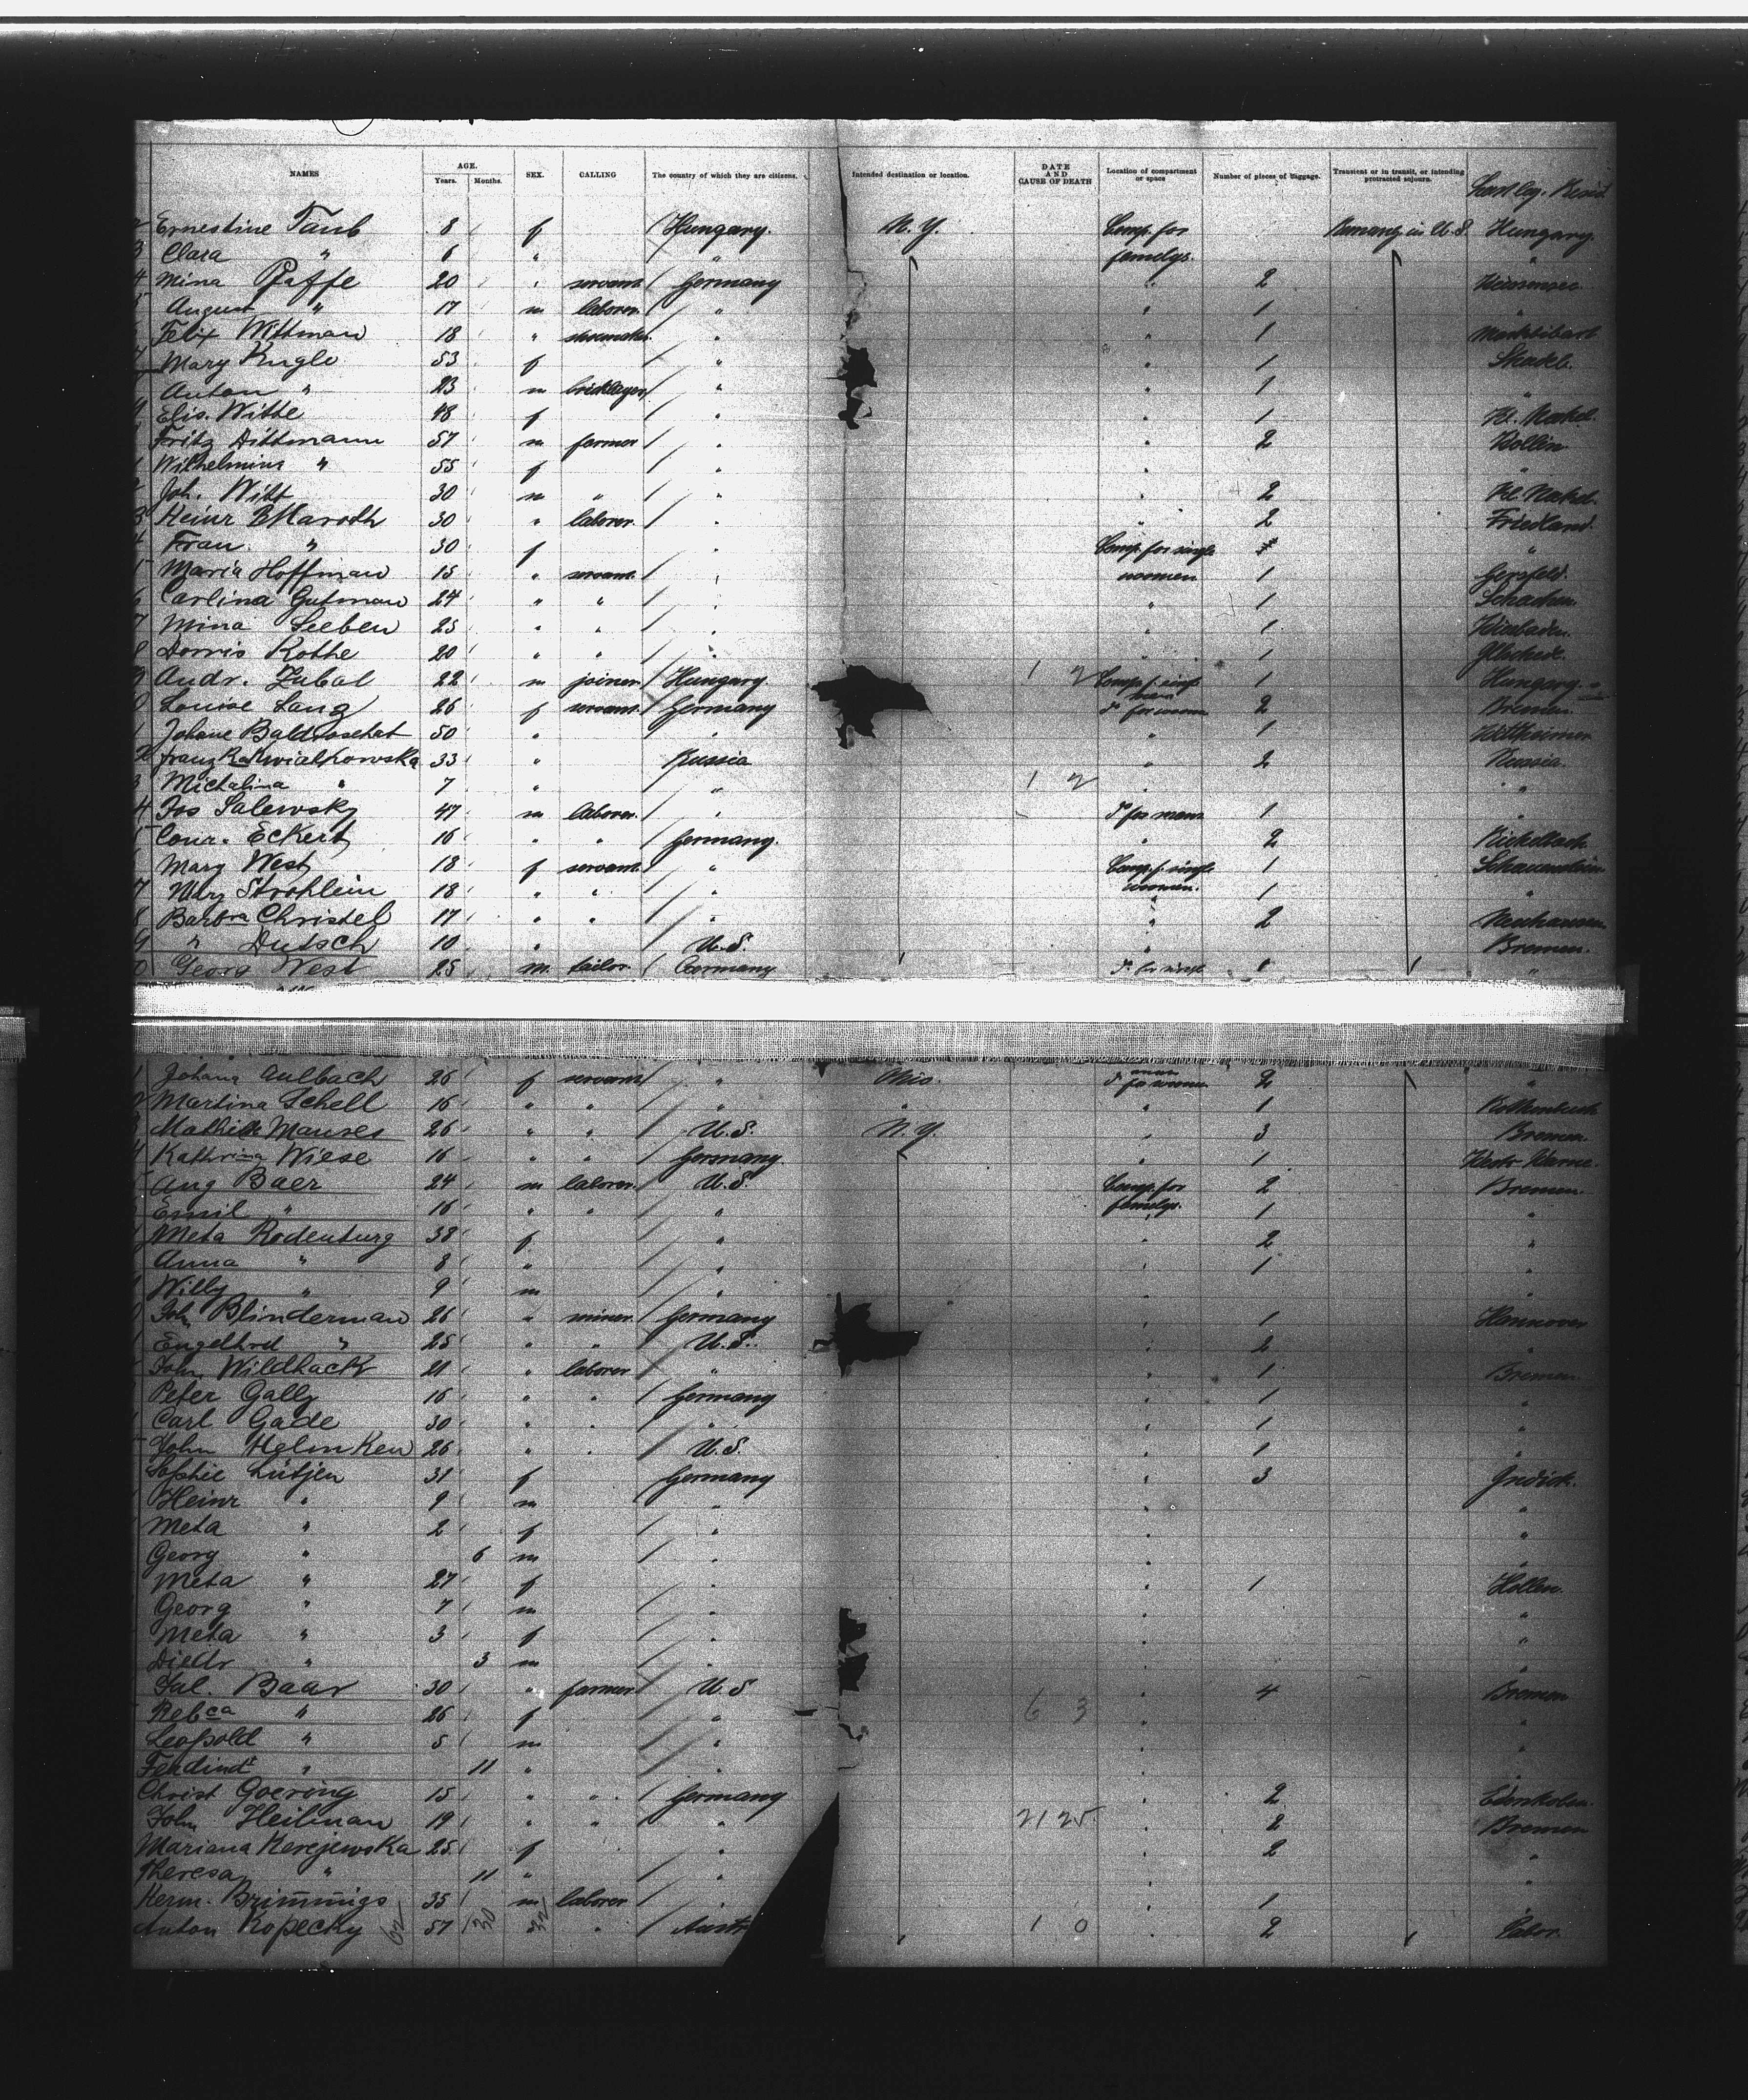 NAMES AGE. Years. Months. SEX. CALLING The country of which they are citizens. Intended destination or location. DATE AND CAUSE OF DEATH Location of compartment or space Number of pieces of baggage. Transient or in transit, or intending protracted sojourn.
Ernestine Taub 8 f Hungary. N.Y. Comp. for in U.S. Hungary
Clara " 6 " " familys. "
Mina Pfaffe 20 " servant Germany " 2
August " 17 m laborer " " 1 "
Felix Wittman 18 " " " 1
Mary Kugle 53 f " 1
Anton " 23 m bricklayer " " 1 "
Elis. Witte 48 f " " 1 Kl. Nakel
Fritz Dittmann 57 m farmer " " 2 Wollin
Wilhelmine " 55 f " " "
Joh. Witt 30 m " " " 2 Kl. Nakel
Heinr 30 " laborer " " 2 Friedland
Frau " 30 f " Comp. for single "
Maria Hoffman 15 " servant " women 1 Gersfeld.
Carlina Gutman 24 " " " " 1
Mina Seeben 25 " " " " 1
Dorris Rothe 20 " " " " 1
Andr. Zubal 22 m joiner Hungary 1 2 Comp. f. singl 1 Hungary
men
Louise Lang 26 f servant Germany d° for women 2 Bremen
Johane 50 " " " 1
33 " Russia " 2 Russia
Michalina " 7 " " 1 2 " "
Jos Salewsky 47 m laborer " d° for men 1 "
Conr. Eckert 16 " " Germany. " 2
Mary West 18 f servant " Comp. f. single 1
women.
Mary Strohlein 18 " " " " 1 "
Barbra Christel 17 " " " " 2 Neuhausen
" Dutsch 10 " U.S. " Bremen.
Georg West 25 m. tailor. Germany d° for singl "
Johana Aulbach 26 f servant " Ohio. d° for women 2 "
Martina Schell 16 " " " " " 1
Mathilde Maures 26 " " U.S. N.Y. " 3 Bremen.
Kathrina Wiese 16 " " Germany. " 1
Aug Baer 24 m laborer U.S. Comp. for 2 Bremen.
Emil " 16 " " " familys. 1 "
Meta Rodenburg 38 f " " 2 "
Anna " 8 " " " 1 "
Willy " 9 m " " "
Joh. Blinderman 26 " miner Germany " 1 Hannover
Engelhrd " 25 " " U.S. " 2 "
John Wildhack 21 " laborer " " 1 Bremen
Peter Gally 16 " " Germany " 1 "
Carl Gade 30 " " " " 1 "
John Helmken 26 " " U.S. " 1 "
Sophie Lütjen 31 f Germany " 3
Heinr " 9 m " " "
Meta " 2 f " " "
Georg " 6 m " " "
Meta " 27 f " " 1 Hollen
Georg " 7 m " " "
Meta " 3 f " " "
Diedr " 3 m " " "
Jul. Baar 30 " farmer U.S " 4 Bremen
Rebca " 26 f " 6 3 " "
Leopold " 5 m " " "
Ferdind " 11 " " " "
Christ Goering 15 " " Germany " 2 Edenkoben
John Heilman 19 " " " 21 25 " 2 Bremen
Mariana Kerejewska 25 f " " 2 "
Theresa " 11 " " " "
Herm. Brimmigs 35 m laborer " " 1 "
Anton Kopecky 62 57 30 32 " Aust 1 0 " 2 Tabor.